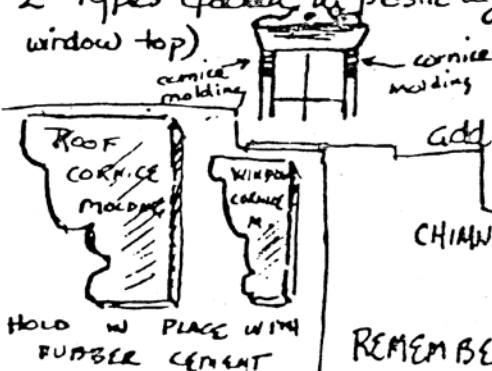 2 Types
window top)
cornice
molding
cornice
molding
ROOF
CORNICE
MOLDING
WINDOW
CORNICE
M
add
CHIMN
HOLD IN PLACE WITH
RUBBER CEMENT
REMEMBE